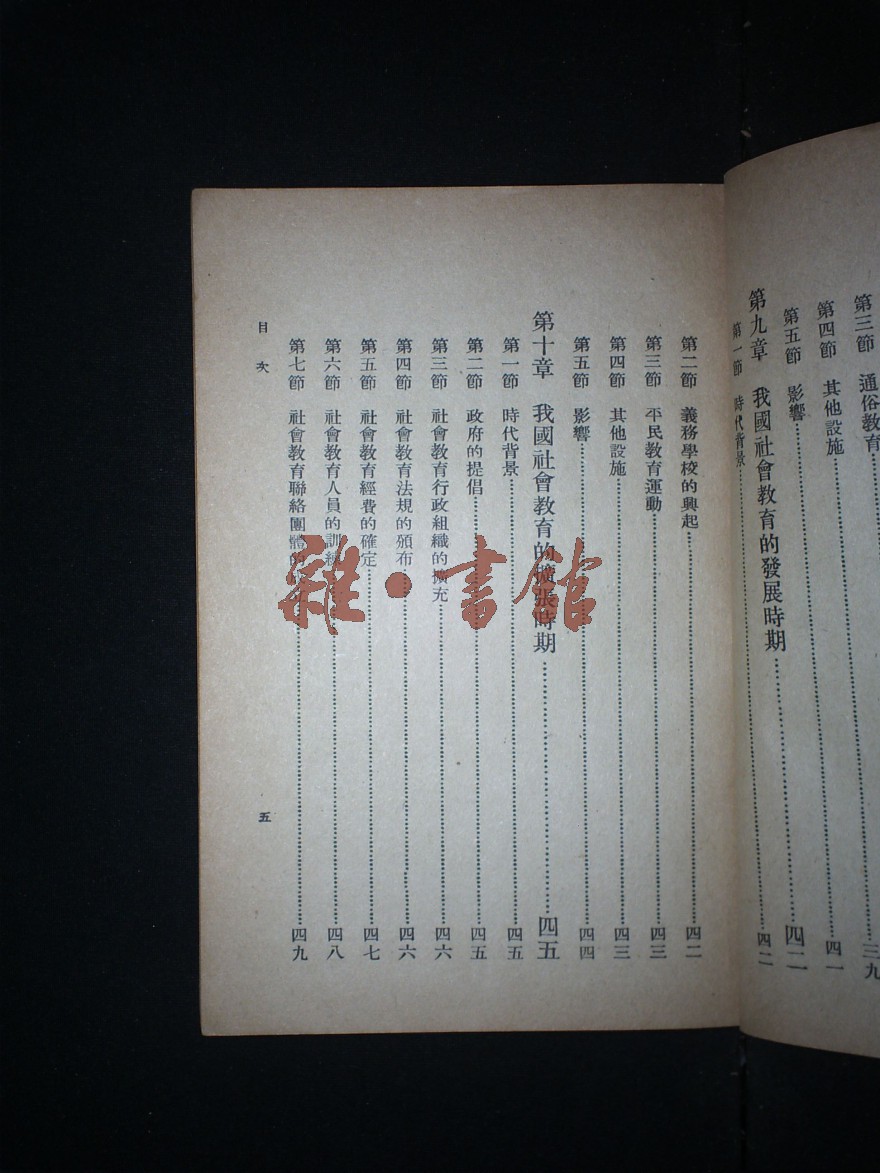 第三節 通俗教育…………三九
第四節 其他設施…………四一
第五節 影響…………
第九章 我國社會教育的發展時期…………四二
第一節 時代背景…………四二
第二節 義務學校的興起…………四二
第三節 平民教育運動…………四三
第四節 其他設施…………四三
第五節 影響…………四四
第十章 我國社會教育的擴張時期…………四五
第一節 時代背景…………四五
第二節 政府的提倡…………四五
第三節 社會教育行政組織的擴充…………四六
第四節 社會教育法規的頒布…………四六
第五節 社會教育經費的確定…………四七
第六節 社會教育人員的訓練…………四八
第七節 社會教育聯絡團體的…………四九
目次
五
雜·書館